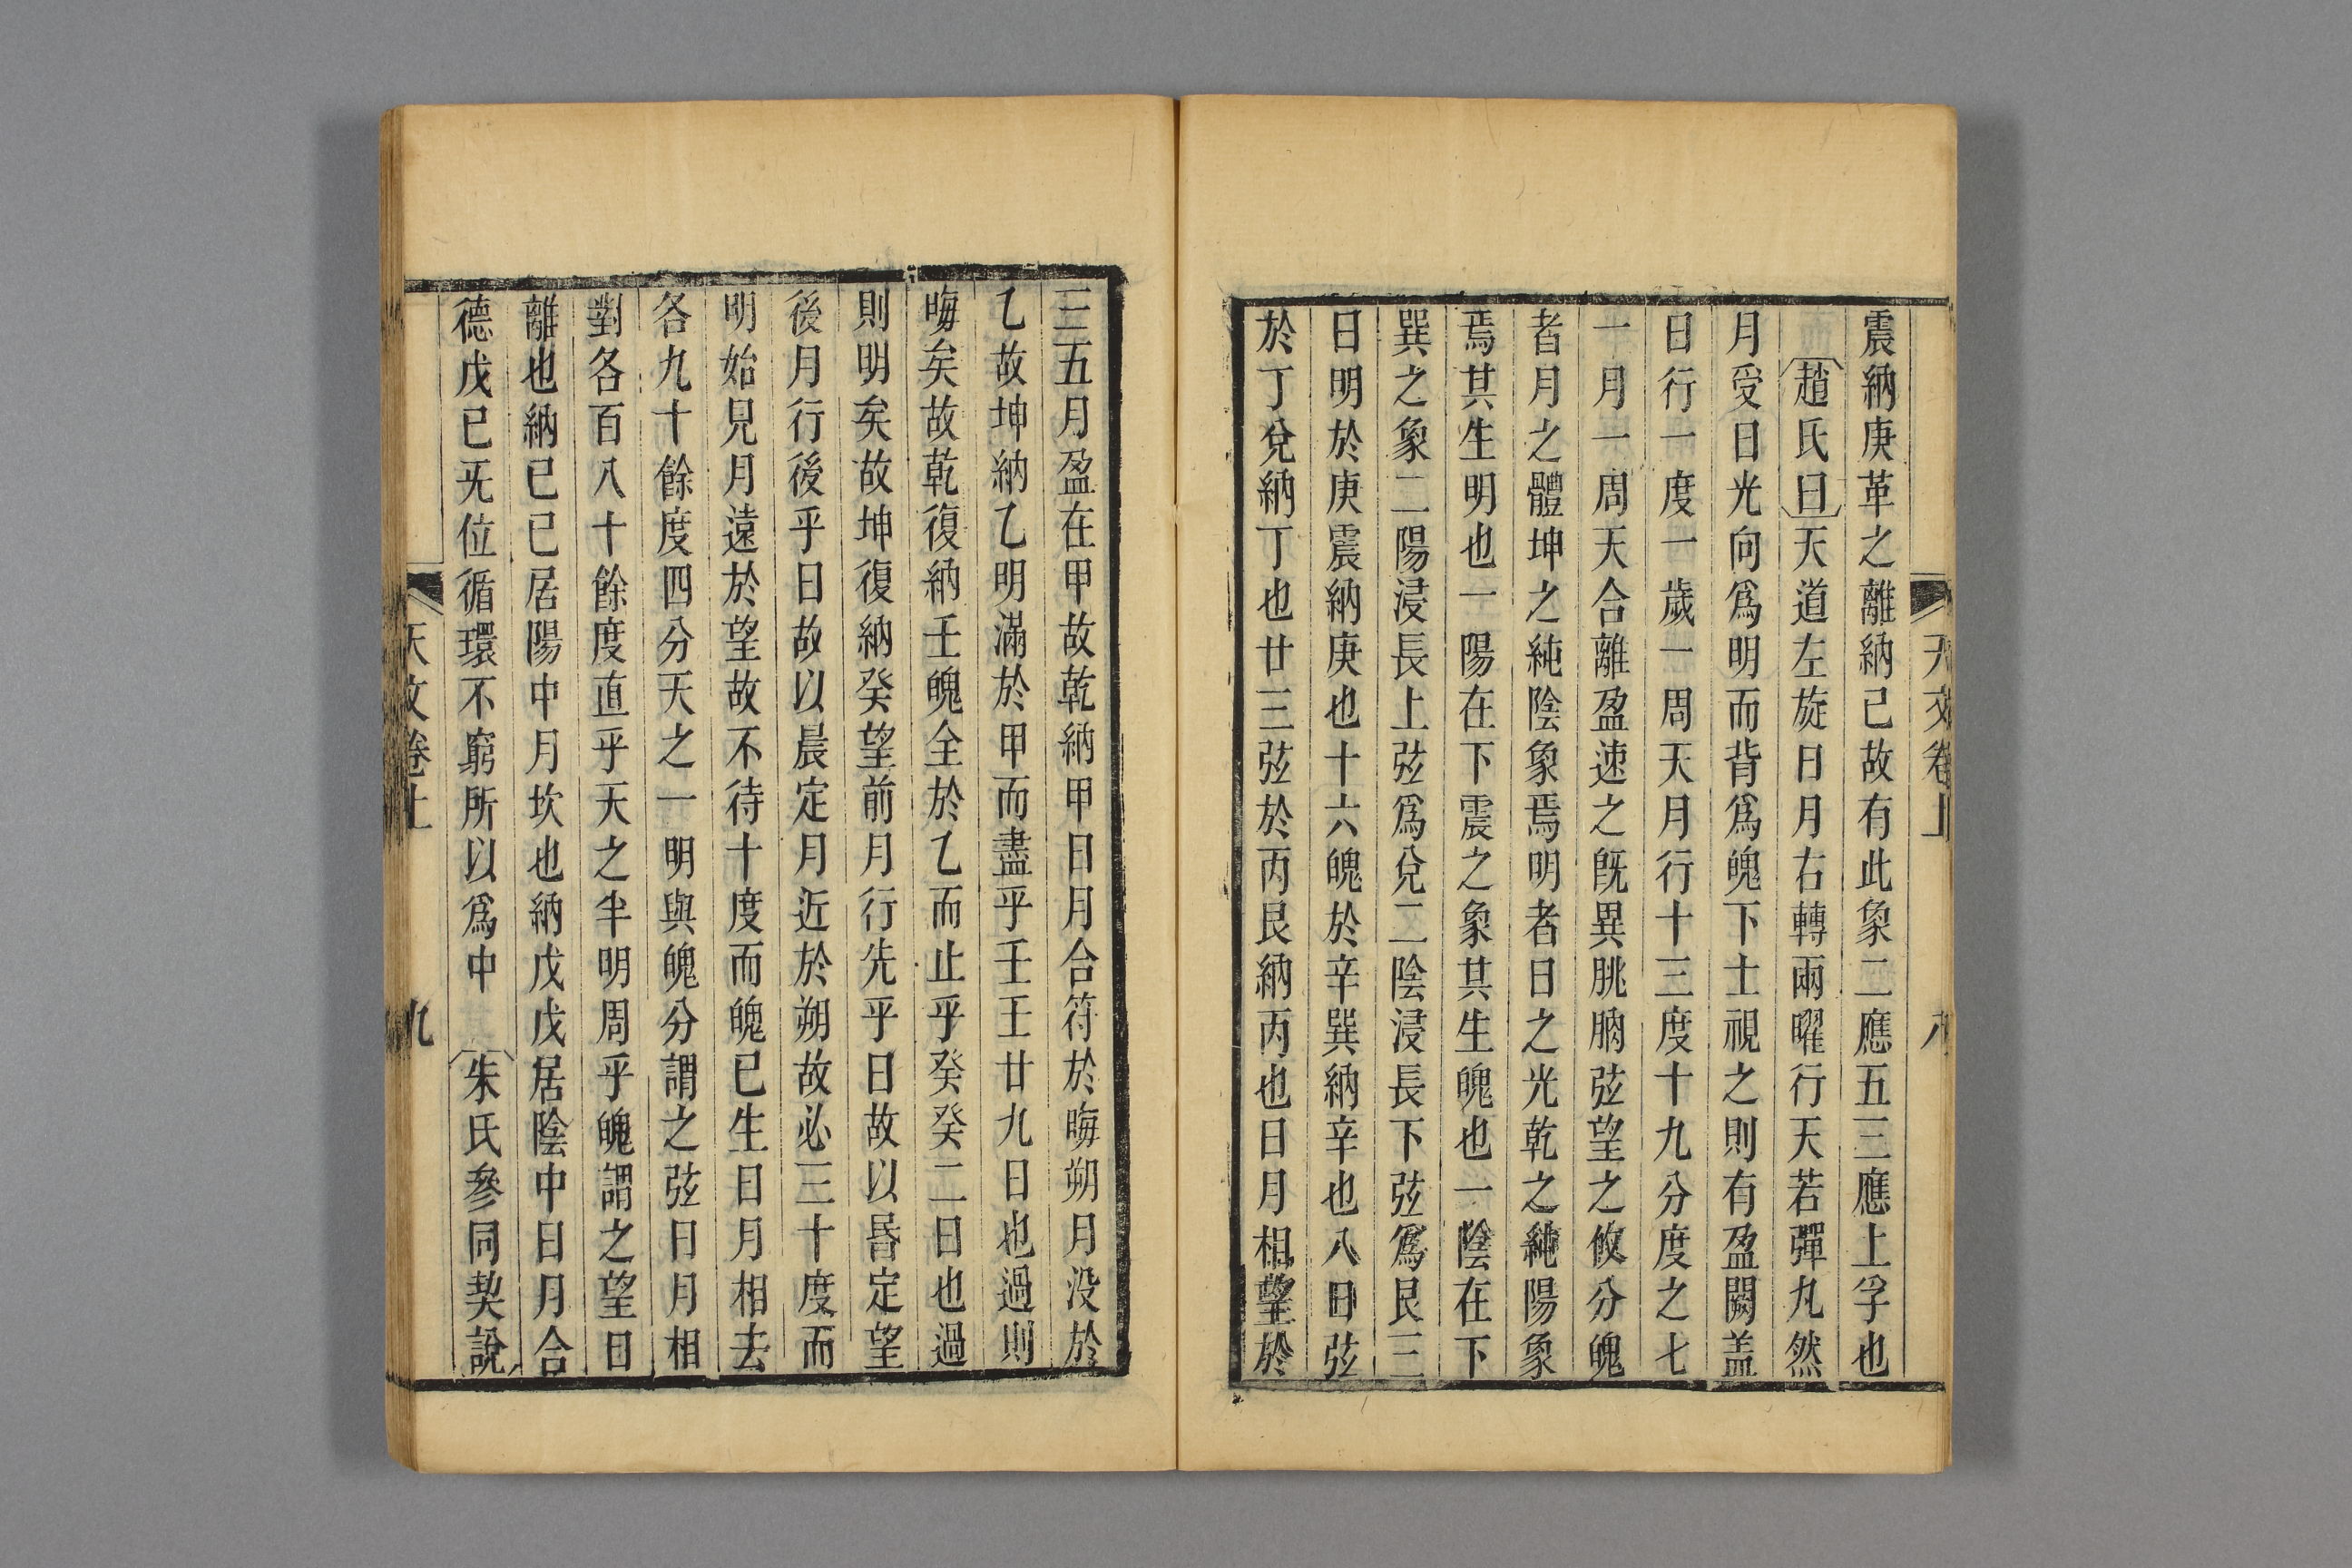 天文卷上　八
震納庚革之離納己故有此象二應五三應上孚也
趙氏曰天道左旋日月右轉兩曜行天若彈丸然
月受日光向爲明而背爲魄下土視之則有盈闕盖
日行一度一歲一周天月行十三度十九分度之七
一月一周天合離盈速之旣異朓朒弦望之攸分魄
者月之體坤之純陰象焉明者日之光乾之純陽象
焉其生明也一陽在下震之象其生魄也一陰在下
巽之象二陽浸長上弦爲兌二陰浸長下弦爲艮三
日明於庚震納庚也十六魄於辛巽納辛也八日弦
於丁兌納丁也廿三弦於丙艮納丙也日月相望於
三五月盈在甲故乾納甲日月合符於晦朔月没於
乙故坤納乙明滿於甲而盡乎壬壬廿九日也過則
晦矣故乾復納壬魄全於乙而止乎癸癸二日也過
則明矣故坤復納癸望前月行先乎日故以昬定望
後月行後乎日故以晨定月近於朔故必三十度而
明始見月遠於望故不待十度而魄已生日月相去
各九十餘度四分天之一明與魄分謂之弦日月相
對各百八十餘度直乎天之半明周乎魄謂之望日
離也納己己居陽中月坎也納戊戊居陰中日月合
德戊己无位循環不窮所以爲中　朱氏參同契說
天文卷上　九